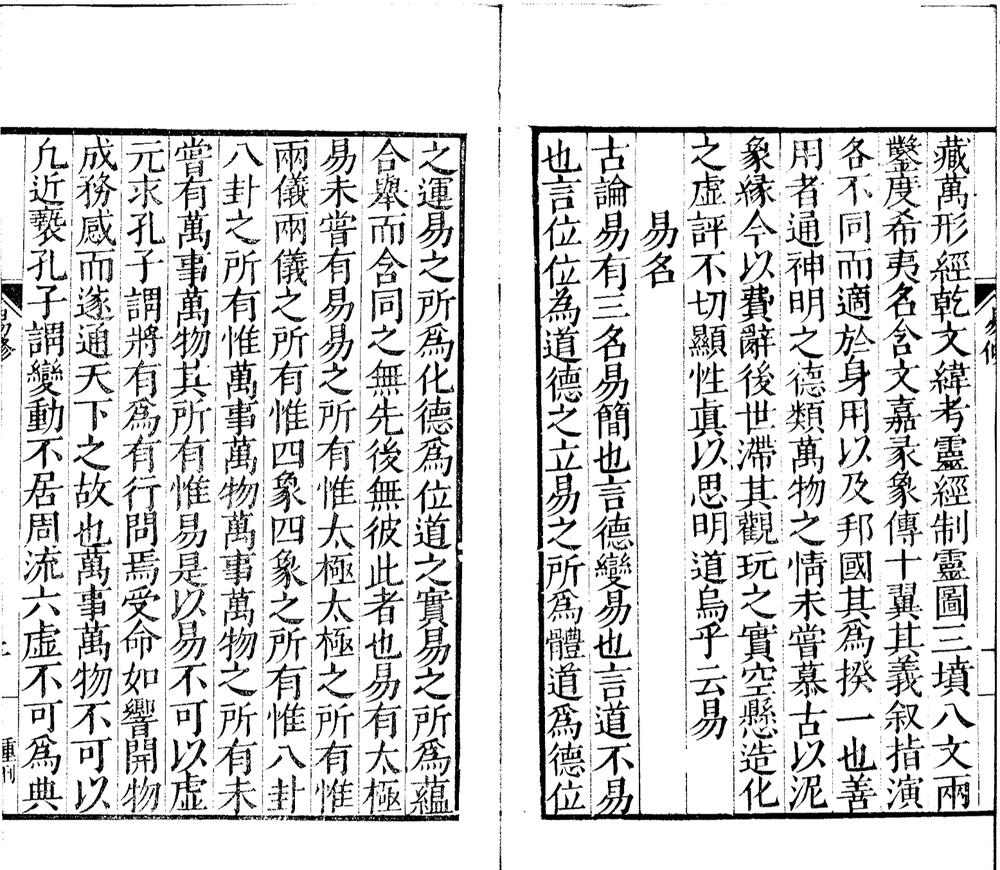 藏萬形經乾文緯考靈經制靈圖三墳八文兩
鑿度希夷名含文嘉彖象傳十翼其義叙指演
各不同而適於身用以及邦國其爲揆一也善
用者通神明之德類萬物之情未嘗慕古以泥
象緣今以費辭後世滯其觀玩之實空懸造化
之虛評不切顯性真以思明道烏乎云易
易名
古論易有三名易簡也言德變易也言道不易
也言位位為道德之立易之所爲體道爲德位
之運易之所爲化德爲位道之實易之所爲蘊
合舉而含同之無先後無彼此者也易有太極
易未嘗有易易之所有惟太極太極之所有惟
兩儀兩儀之所有惟四象四象之所有惟八卦
八卦之所有惟萬事萬物萬事萬物之所有未
嘗有萬事萬物其所有惟易是以易不可以虛
元求孔子謂將有爲有行問焉受命如響開物
成務感而遂通天下之故也萬事萬物不可以
凢近褻孔子謂變動不居周流六虛不可爲典